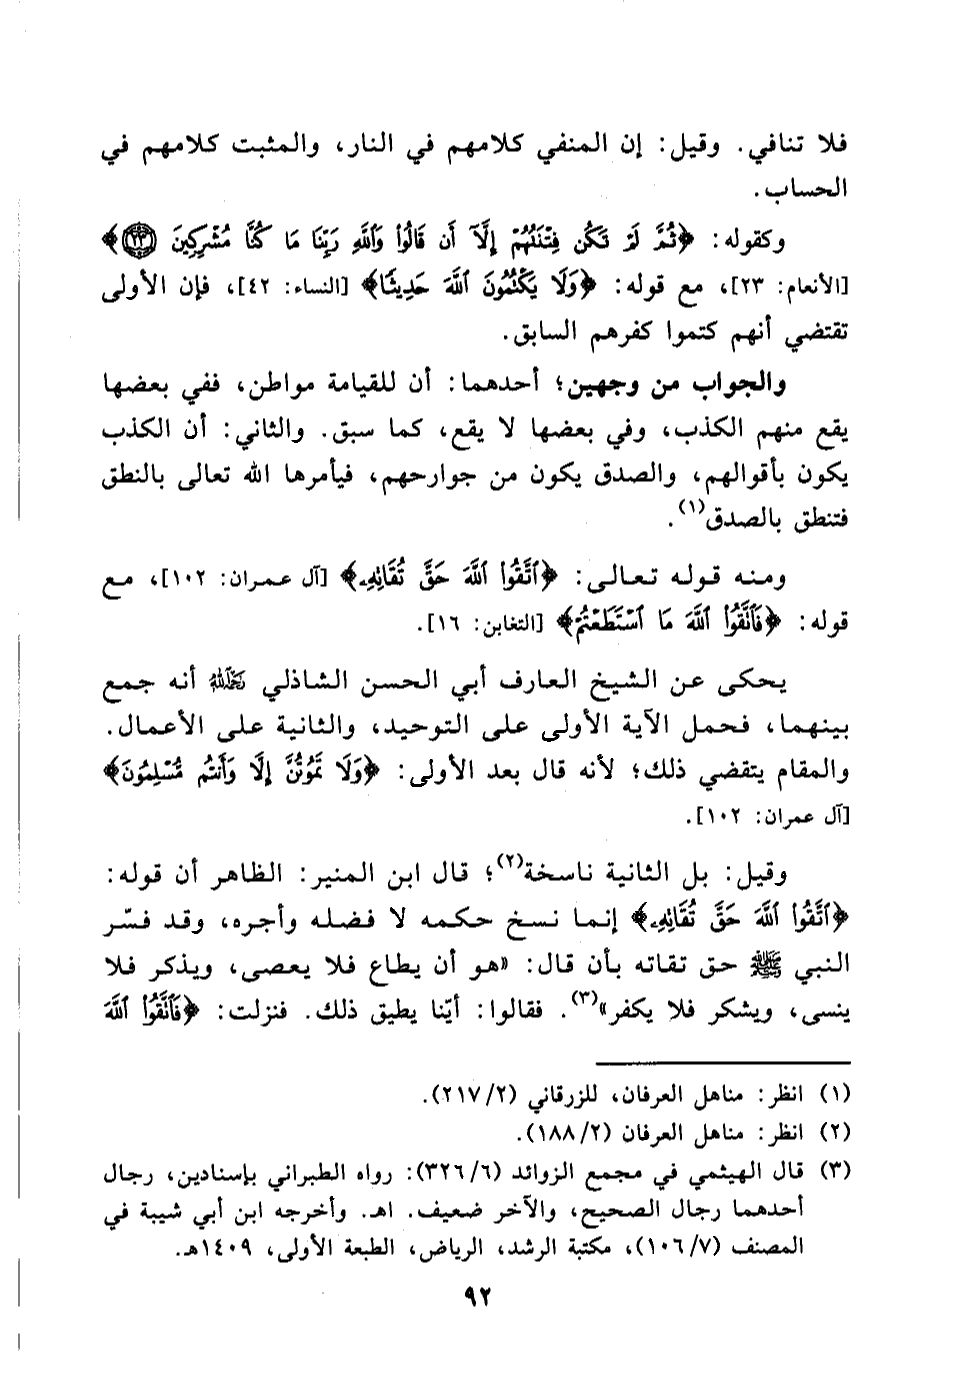 فلا تنافي. وقيل: إن المنفي كلامهم في النار، والمثبت كلامهم في
الحساب.
وكقوله: ﴿ثُمَّ لَمْ تَكُن فِتْنَتُهُمْ إِلَّآ أَن قَالُوا۟ وَٱللَّهِ رَبِّنَا مَا كُنَّا مُشْرِكِينَ ۝٢٣﴾
[الأنعام: ٢٣]، مع قوله: ﴿وَلَا يَكْتُمُونَ ٱللَّهَ حَدِيثًا﴾ [النساء: ٤٢]، فإن الأولى
تقتضي أنهم كتموا كفرهم السابق.
والجواب من وجهين؛ أحدهما: أن للقيامة مواطن، ففي بعضها
يقع منهم الكذب، وفي بعضها لا يقع، كما سبق. والثاني: أن الكذب
يكون بأقوالهم، والصدق يكون من جوارحهم، فيأمرها الله تعالى بالنطق
فتنطق بالصدق(١).
ومنه قوله تعالى: ﴿ٱتَّقُوا۟ ٱللَّهَ حَقَّ تُقَاتِهِۦ﴾ [آل عمران: ١٠٢]، مع
قوله: ﴿فَٱتَّقُوا۟ ٱللَّهَ مَا ٱسْتَطَعْتُمْ﴾ [التغابن: ١٦].
يحكى عن الشيخ العارف أبي الحسن الشاذلي رحمه الله أنه جمع
بينهما، فحمل الآية الأولى على التوحيد، والثانية على الأعمال.
والمقام يتقضي ذلك؛ لأنه قال بعد الأولى: ﴿وَلَا تَمُوتُنَّ إِلَّا وَأَنتُم مُّسْلِمُونَ﴾
[آل عمران: ١٠٢].
وقيل: بل الثانية ناسخة(٢)؛ قال ابن المنير: الظاهر أن قوله:
﴿ٱتَّقُوا۟ ٱللَّهَ حَقَّ تُقَاتِهِۦ﴾ إنما نسخ حكمه لا فضله وأجره، وقد فسّر
النبي ﷺ حق تقاته بأن قال: «هو أن يطاع فلا يعصى، ويذكر فلا
ينسى، ويشكر فلا يكفر»(٣). فقالوا: أيّنا يطيق ذلك. فنزلت: ﴿فَٱتَّقُوا۟ ٱللَّهَ
(١) انظر: مناهل العرفان، للزرقاني (٢/٢١٧).
(٢) انظر: مناهل العرفان (٢/١٨٨).
(٣) قال الهيثمي في مجمع الزوائد (٦/٣٢٦): رواه الطبراني بإسنادين، رجال
أحدهما رجال الصحيح، والآخر ضعيف. اهـ. وأخرجه ابن أبي شيبة في
المصنف (٧/١٠٦)، مكتبة الرشد، الرياض، الطبعة الأولى، ١٤٠٩هـ.
٩٢